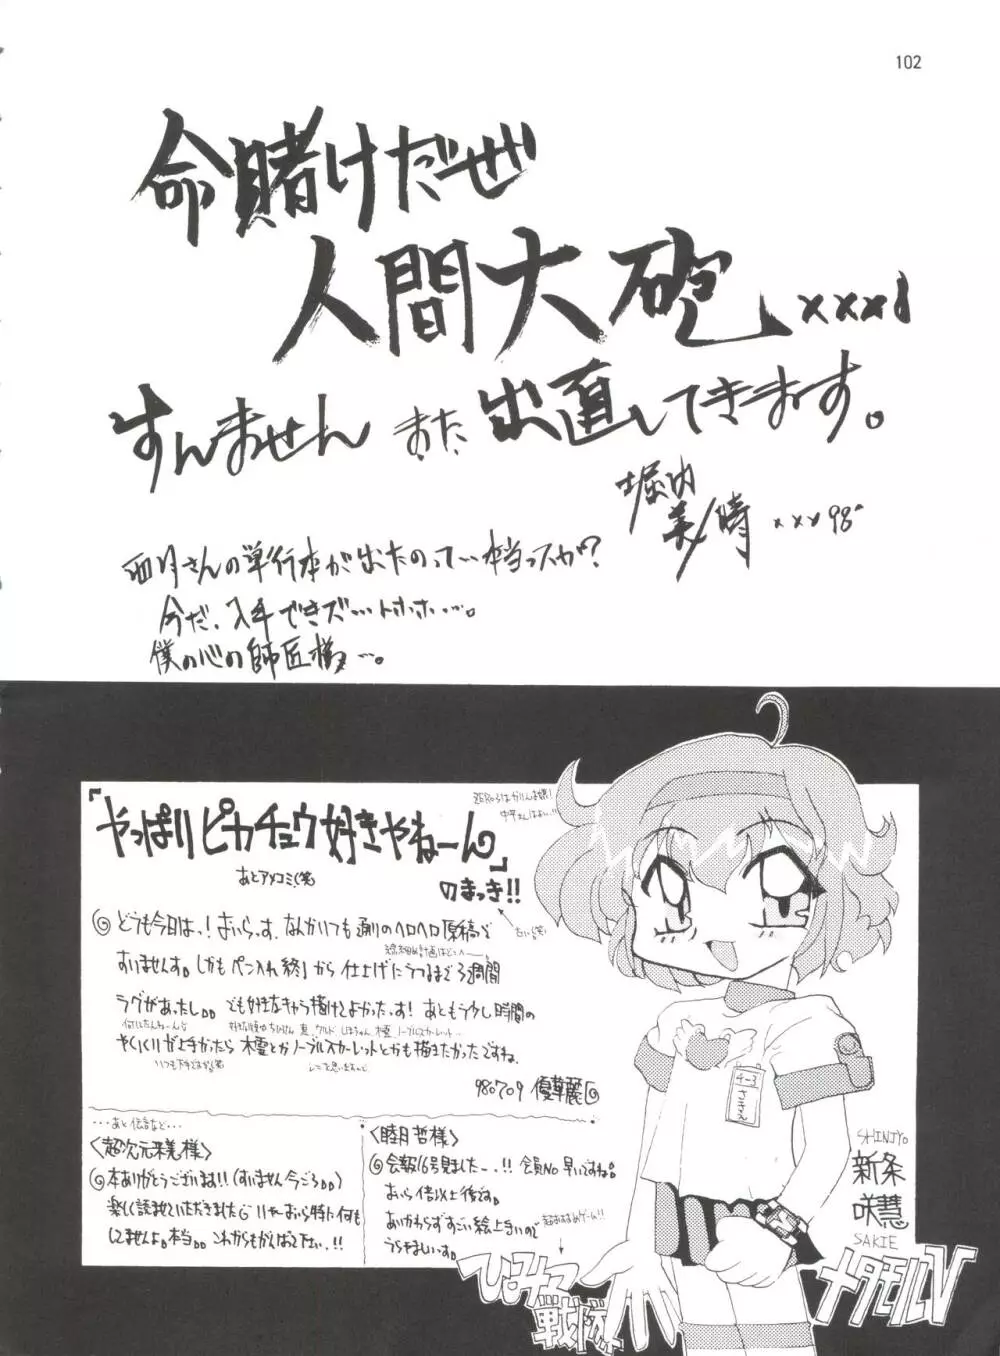 102
命賭けだぜ
人間大砲xxx!
すんません また 出直してきます。
堀内
美時 xxx 98'
西月さんの単行本が出たのって…本当っスか?
今だ、入手できズ…トホホ…。
僕の心の師匠様…。
「やっぱりピカチュウ好きやねーん」
あとアメコミ(笑
のまっき!!
どうも今日はっ!おいらっす。なんかいつも通りのヘロヘロ原稿で
すいませんす。しかもペン入れ終了から仕上げにうつるまで3週間
ラグがあったし。。でも好きなキャラ描けてよかったっす!あともう少し時間の
やりくりが上手かったら 木霊とかノーブルスカーレットとかも描きたかったですね。
いつも下手ですから(笑
980709 優華麗
…あと伝言など…
〈超次元釆美様〉
本ありがとうございます!!(すいません今ごろ。。)
楽しく読ませていただきました
してませんよ。本当。。これからもがんばって下さい.!!
〈睦月哲様〉
会報16号見ました-..!!会員NO早いですね。
おいら倍以上後です。
あいかわらずすごい絵上手いので
うらやましいっす。
超おすすめゲーム!!
ひみつ
戦隊
メタモルV
SHINJYO
新条
咲慧
SAKIE